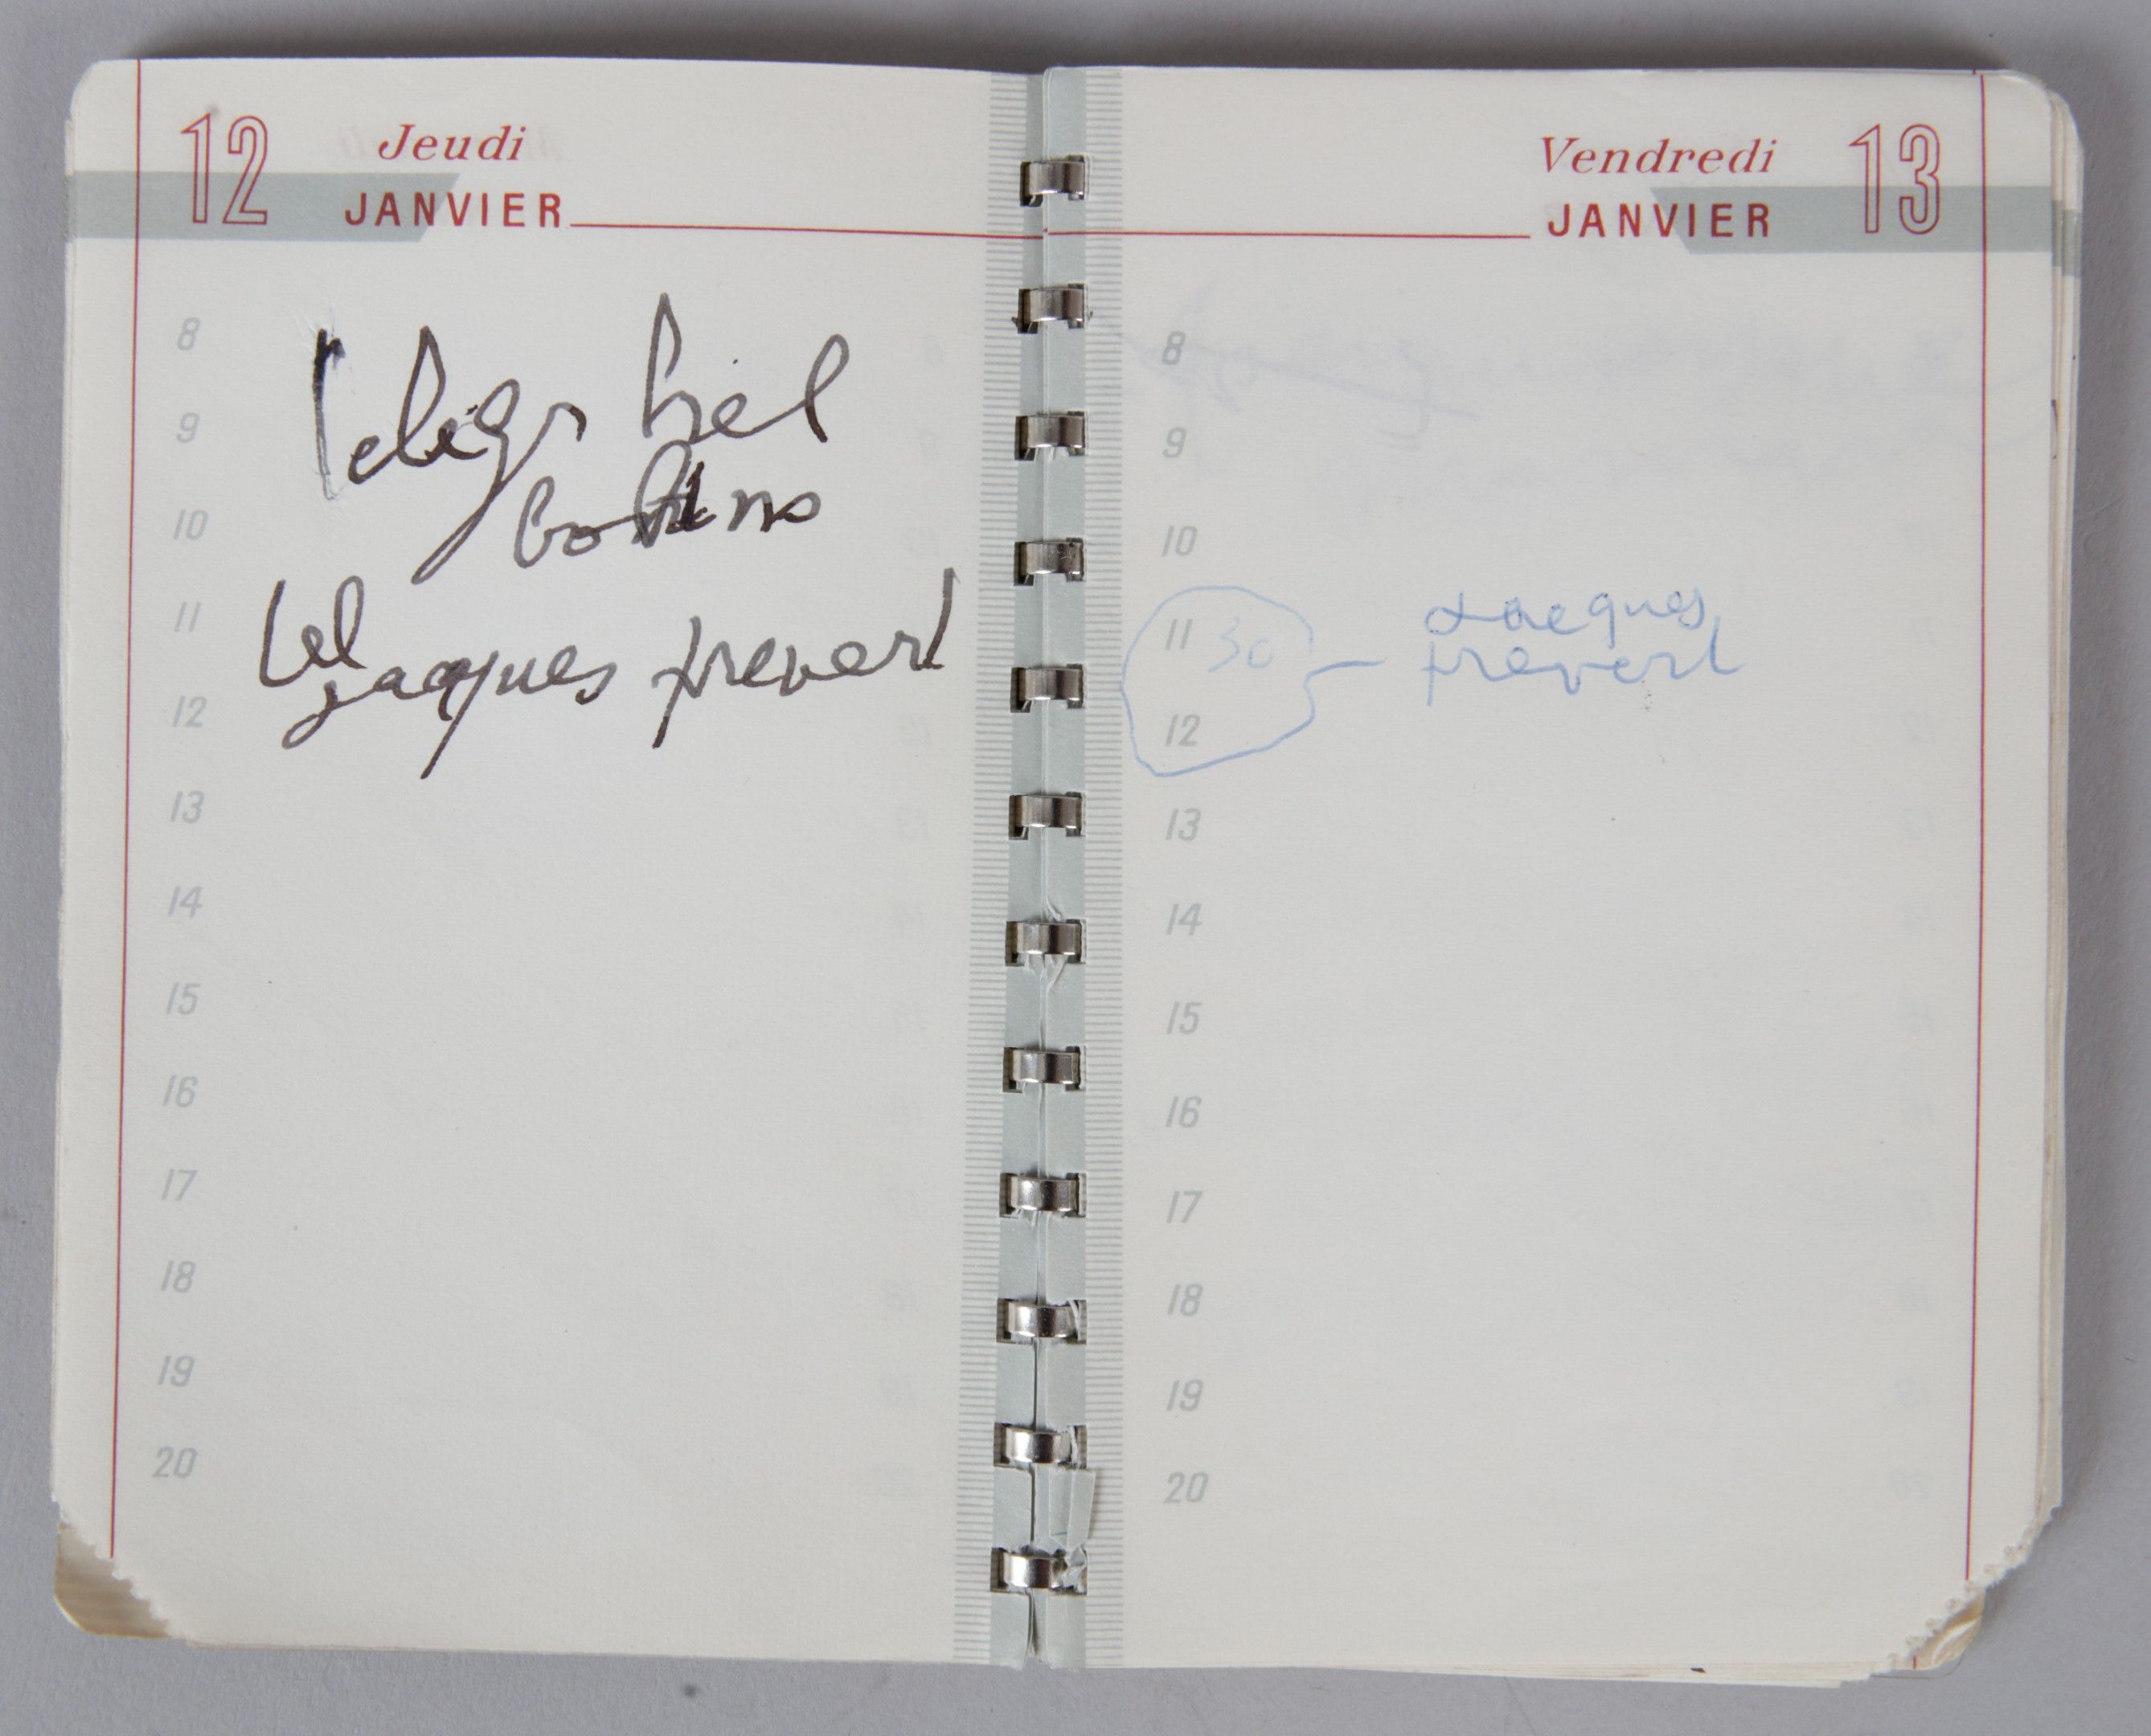 12 Jeudi
JANVIER
8
9
10
tel
11
jacques prevert
12
13
14
15
16
17
18
19
20
Vendredi 13
JANVIER
8
9
10
11 30 Jacques
prevert
12
13
14
15
16
17
18
19
20